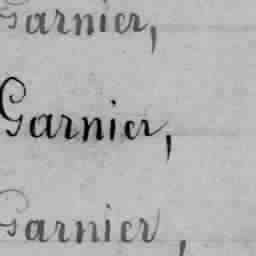 Garnier,
Garnier,
Garnier,